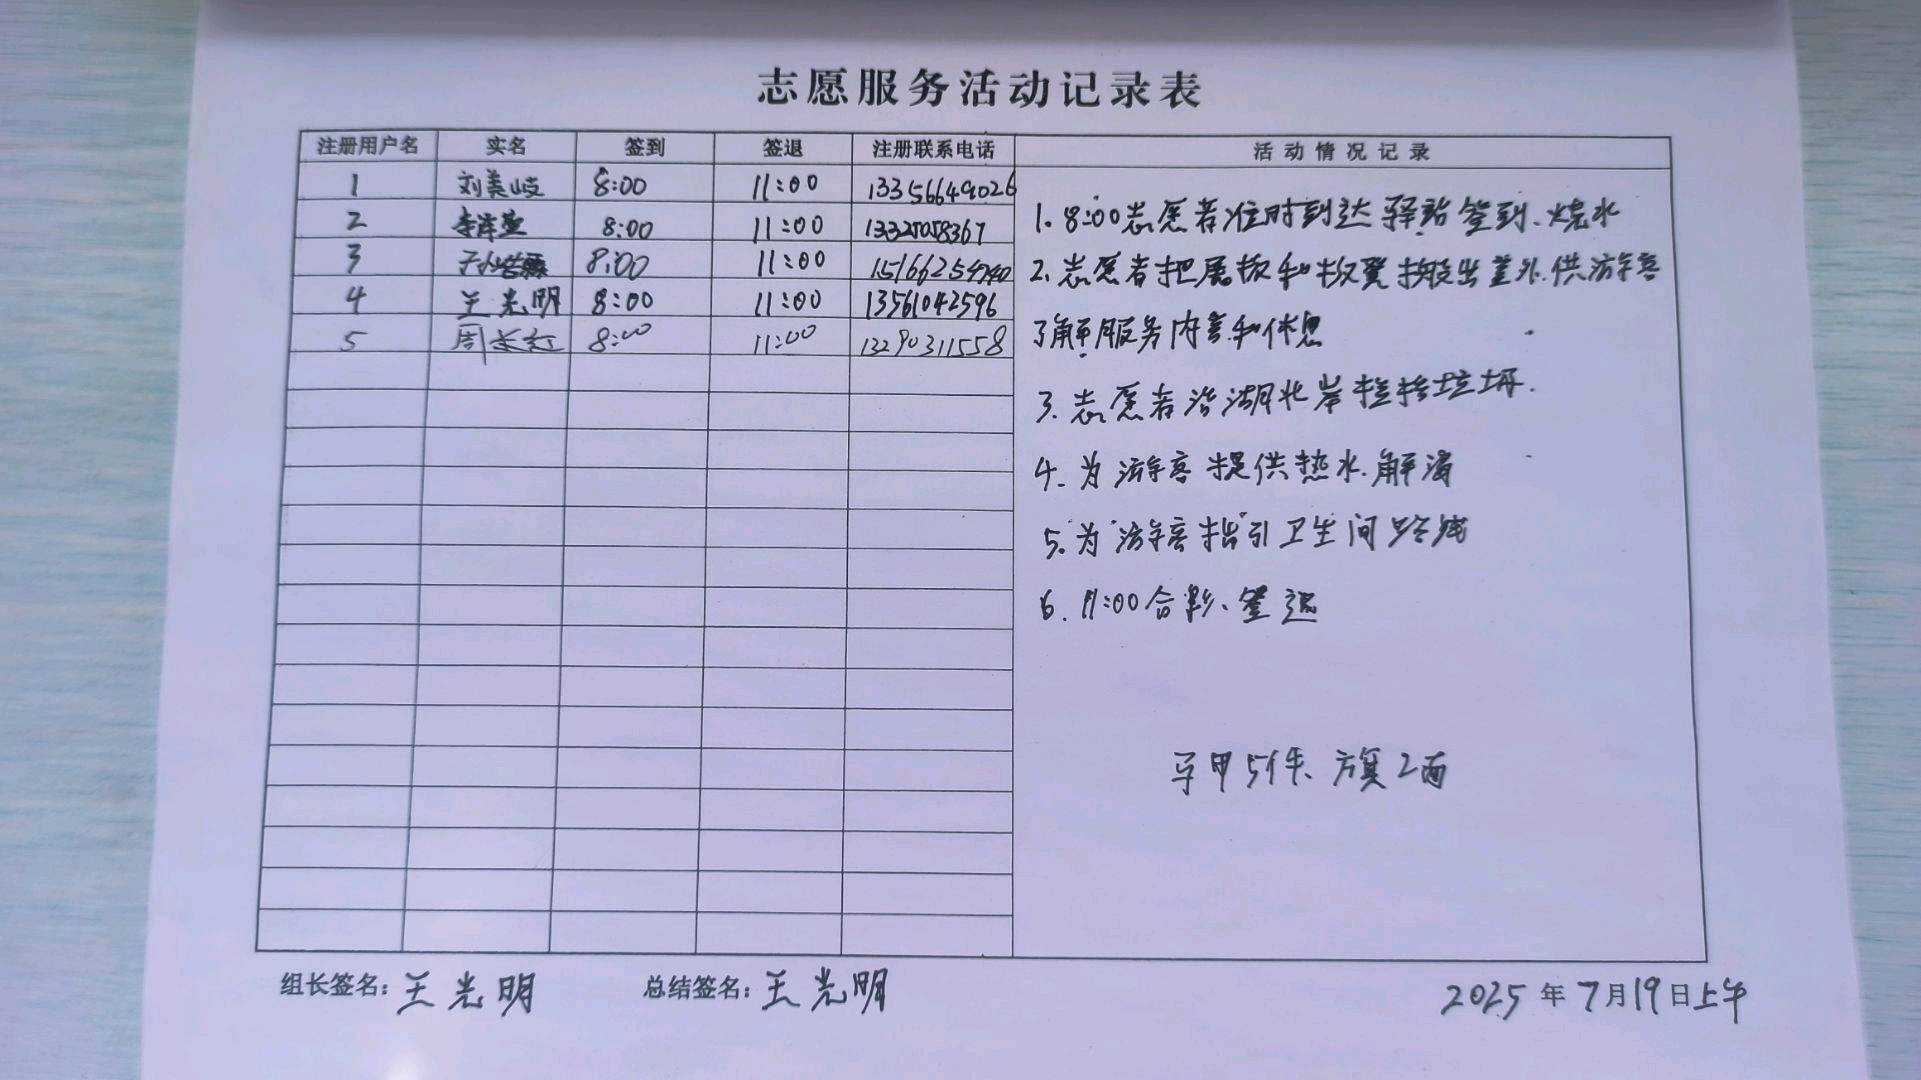 志愿服务活动记录表
注册用户名 实名 签到 签退 注册联系电话 活动情况记录
1 刘美岐 8:00 11:00 13356649026
2 8:00 11:00 13325058367
3 8:00 11:00
4 王光明 8:00 11:00 13561042596
5 周长红 8:00 11:00 13290311558
1. 8:00志愿者准时到达驿站签到、烧水
2. 志愿者把展板和板凳搬出室外.供游客
了解服务内容和休息
3. 志愿者沿湖北岸捡拾垃圾.
4. 为游客提供热水.解渴
5. 为游客指引卫生间路线
6. 11:00合影、签退
马甲5件、旗2面
组长签名:王光明 总结签名:王光明 2025年7月19日上午